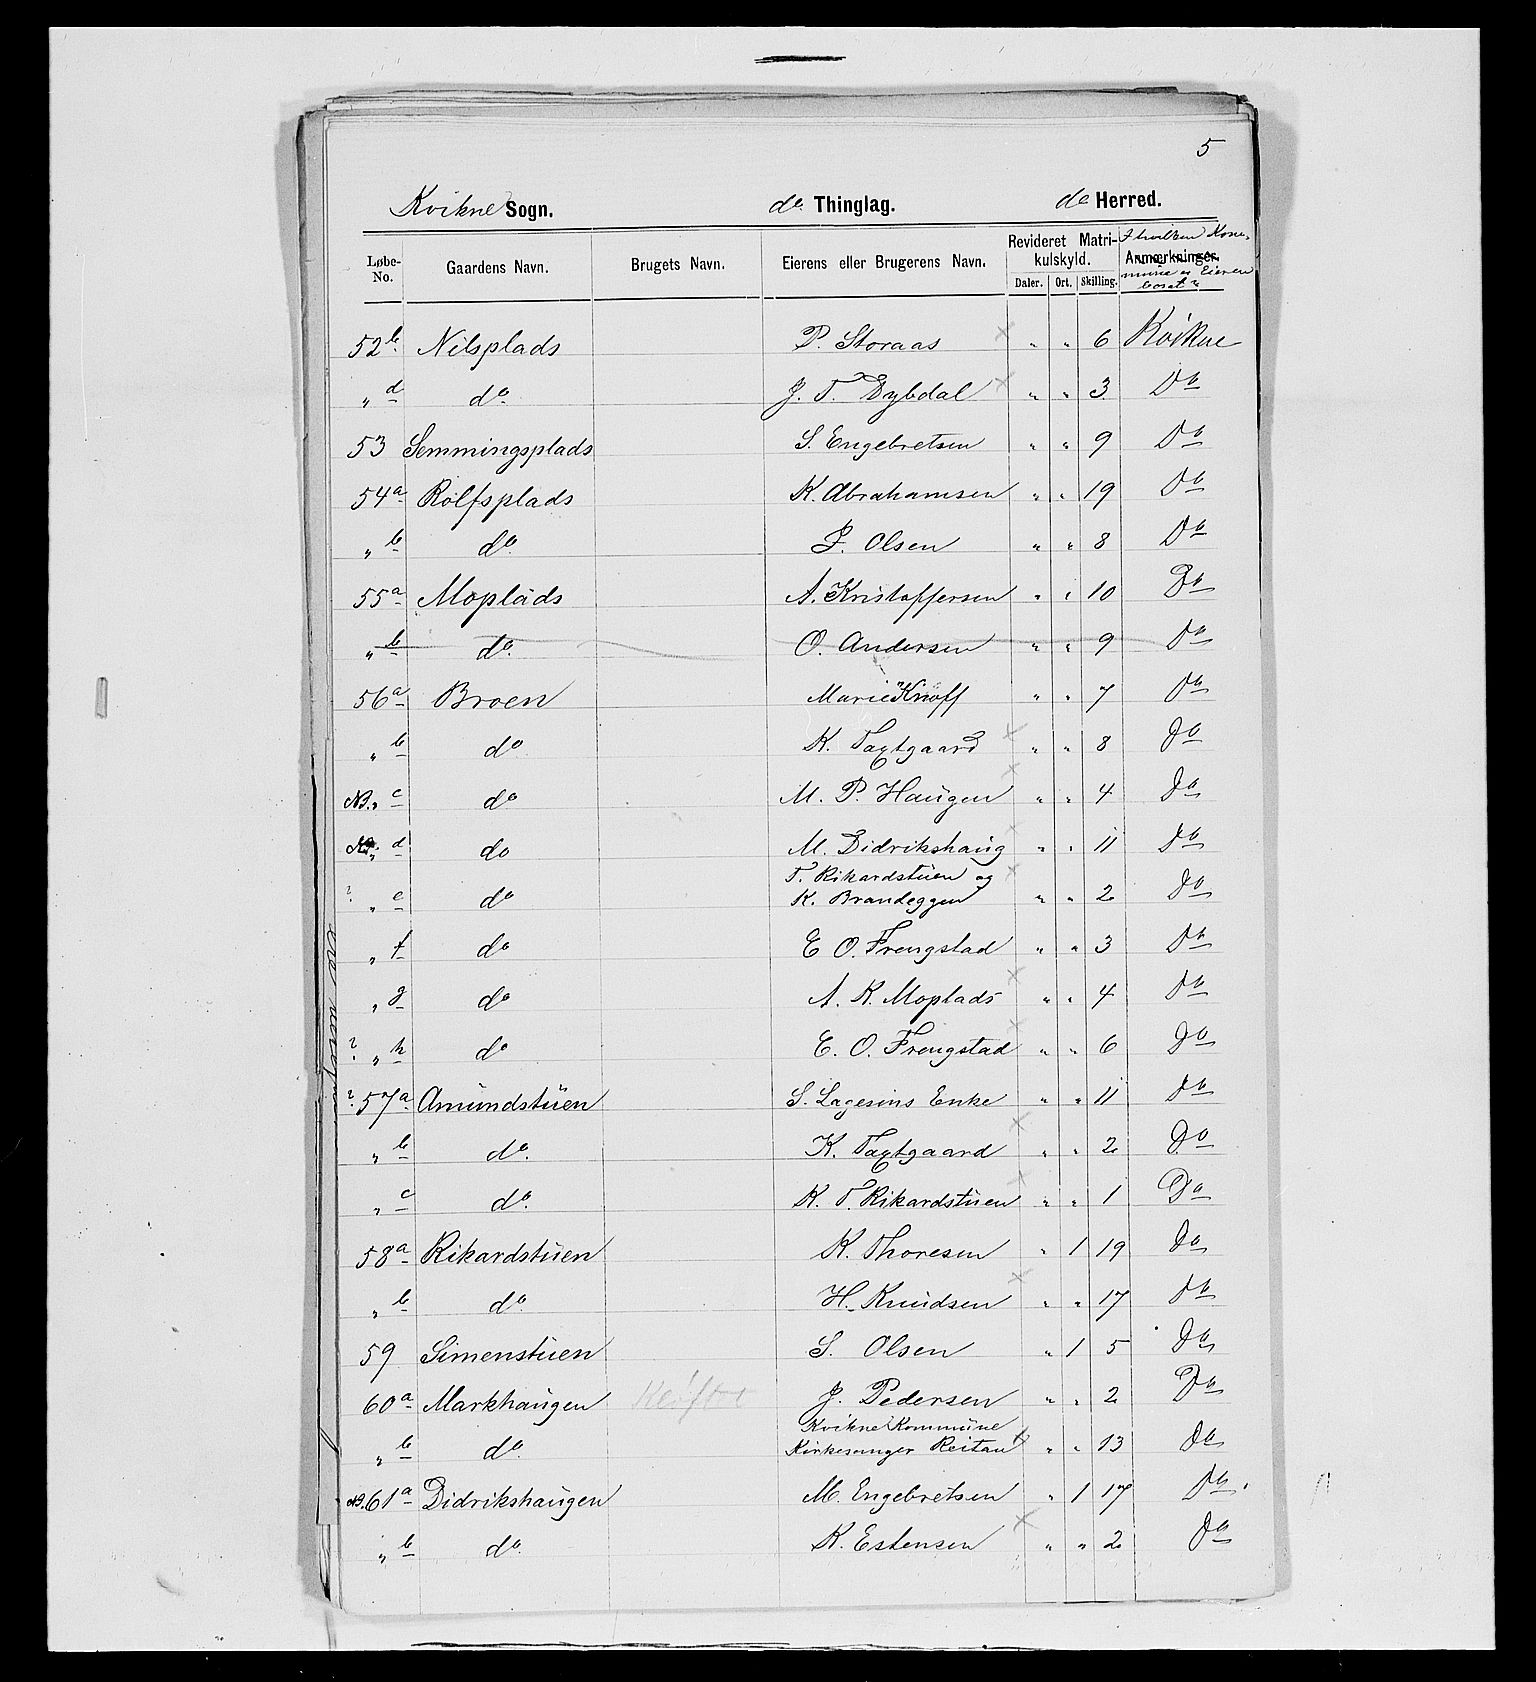 5
Kvikne Sogn. do Thinglag. do Herred.
Løbe-No. Gaardens Navn. Brugets Navn. Eierens eller Brugerens Navn. Revideret Matrikulskyld. Daler. Ort. Skilling. Anmærkninger. I hvilken Kommune er Eieren bosat?
52 b. Nilsplads P. Storaas × " " 6 Kvikne
" d do. J. T. Dybdal × " " 3 Do
53 Semmingsplads S. Engebretsen " " 9 Do
54 a Rolfsplads K. Abrahamsen " " 19 Do
" b do. P. Olsen " " 8 Do
55 a Moplads A. Kristoffersen " " 10 Do
" b do. O. Andersen " " 9 Do
56 a Broen Marie Knoff " " 7 Do
" b do K. Taxtgaard × " " 8 Do
NB. " c do M. P. Haugen × " " 4 Do
" d do M. Didrikshaug × " " 11 Do
? " e do T. Rikardstuen og × 
K. Brandeggen " " 2 Do
" f do E O. Frengstad " " 3 Do
" g do A. K. Moplads × " " 4 Do
? " h do E. O. Frengstad × " " 6 Do
? 57 a Amundstuen S. Lagesens Enke " " 11 Do
" b do. K. Taxtgaard × " " 2 Do
" c do. K. T. Rikardstuen × " " 1 Do
58 a Rikardstuen K. Thoresen " 1 19 Do
" b do. H. Knudsen × " " 17 Do
59 Simenstuen S. Olsen " 1 5 Do
60 a Markhaugen J. Pedersen " " 2 Do
Kvikne Kommune
" b do. Kirkesanger Reitan × " " 13 Do
NB. 61 a Didrikshaugen M. Engebretsen " 1 17 Do
" b do. K. Estensen × " " 2 Do